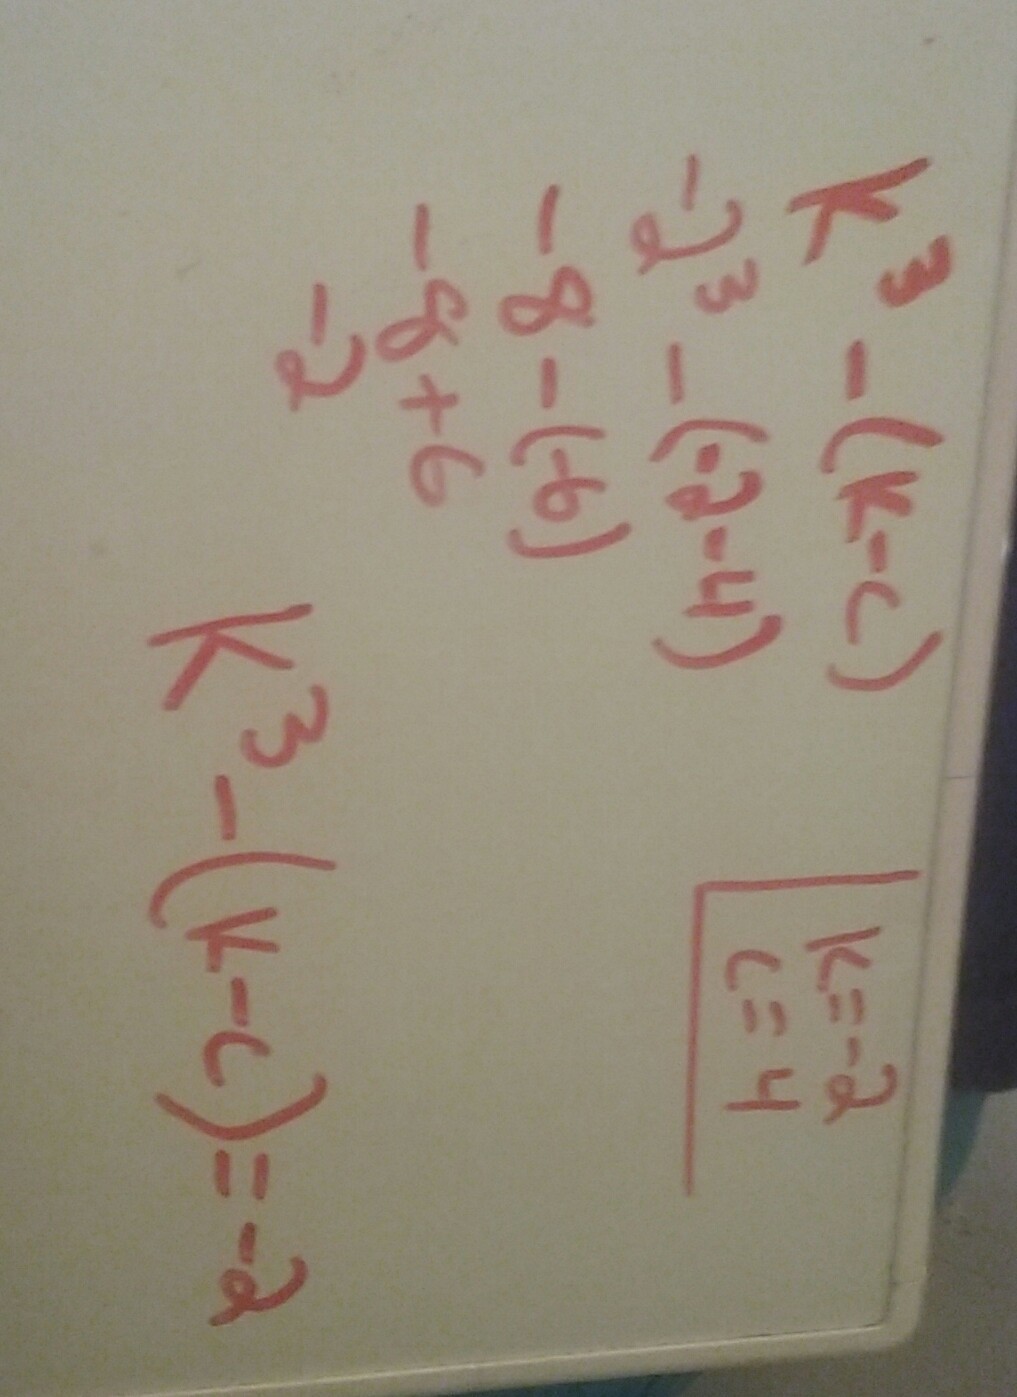 K³ - (K-c)
-2³ - (-2-4)
-8 - (-6)
-8 + 6
-2
K=-2
c=4
K³ - (K-c) = -2